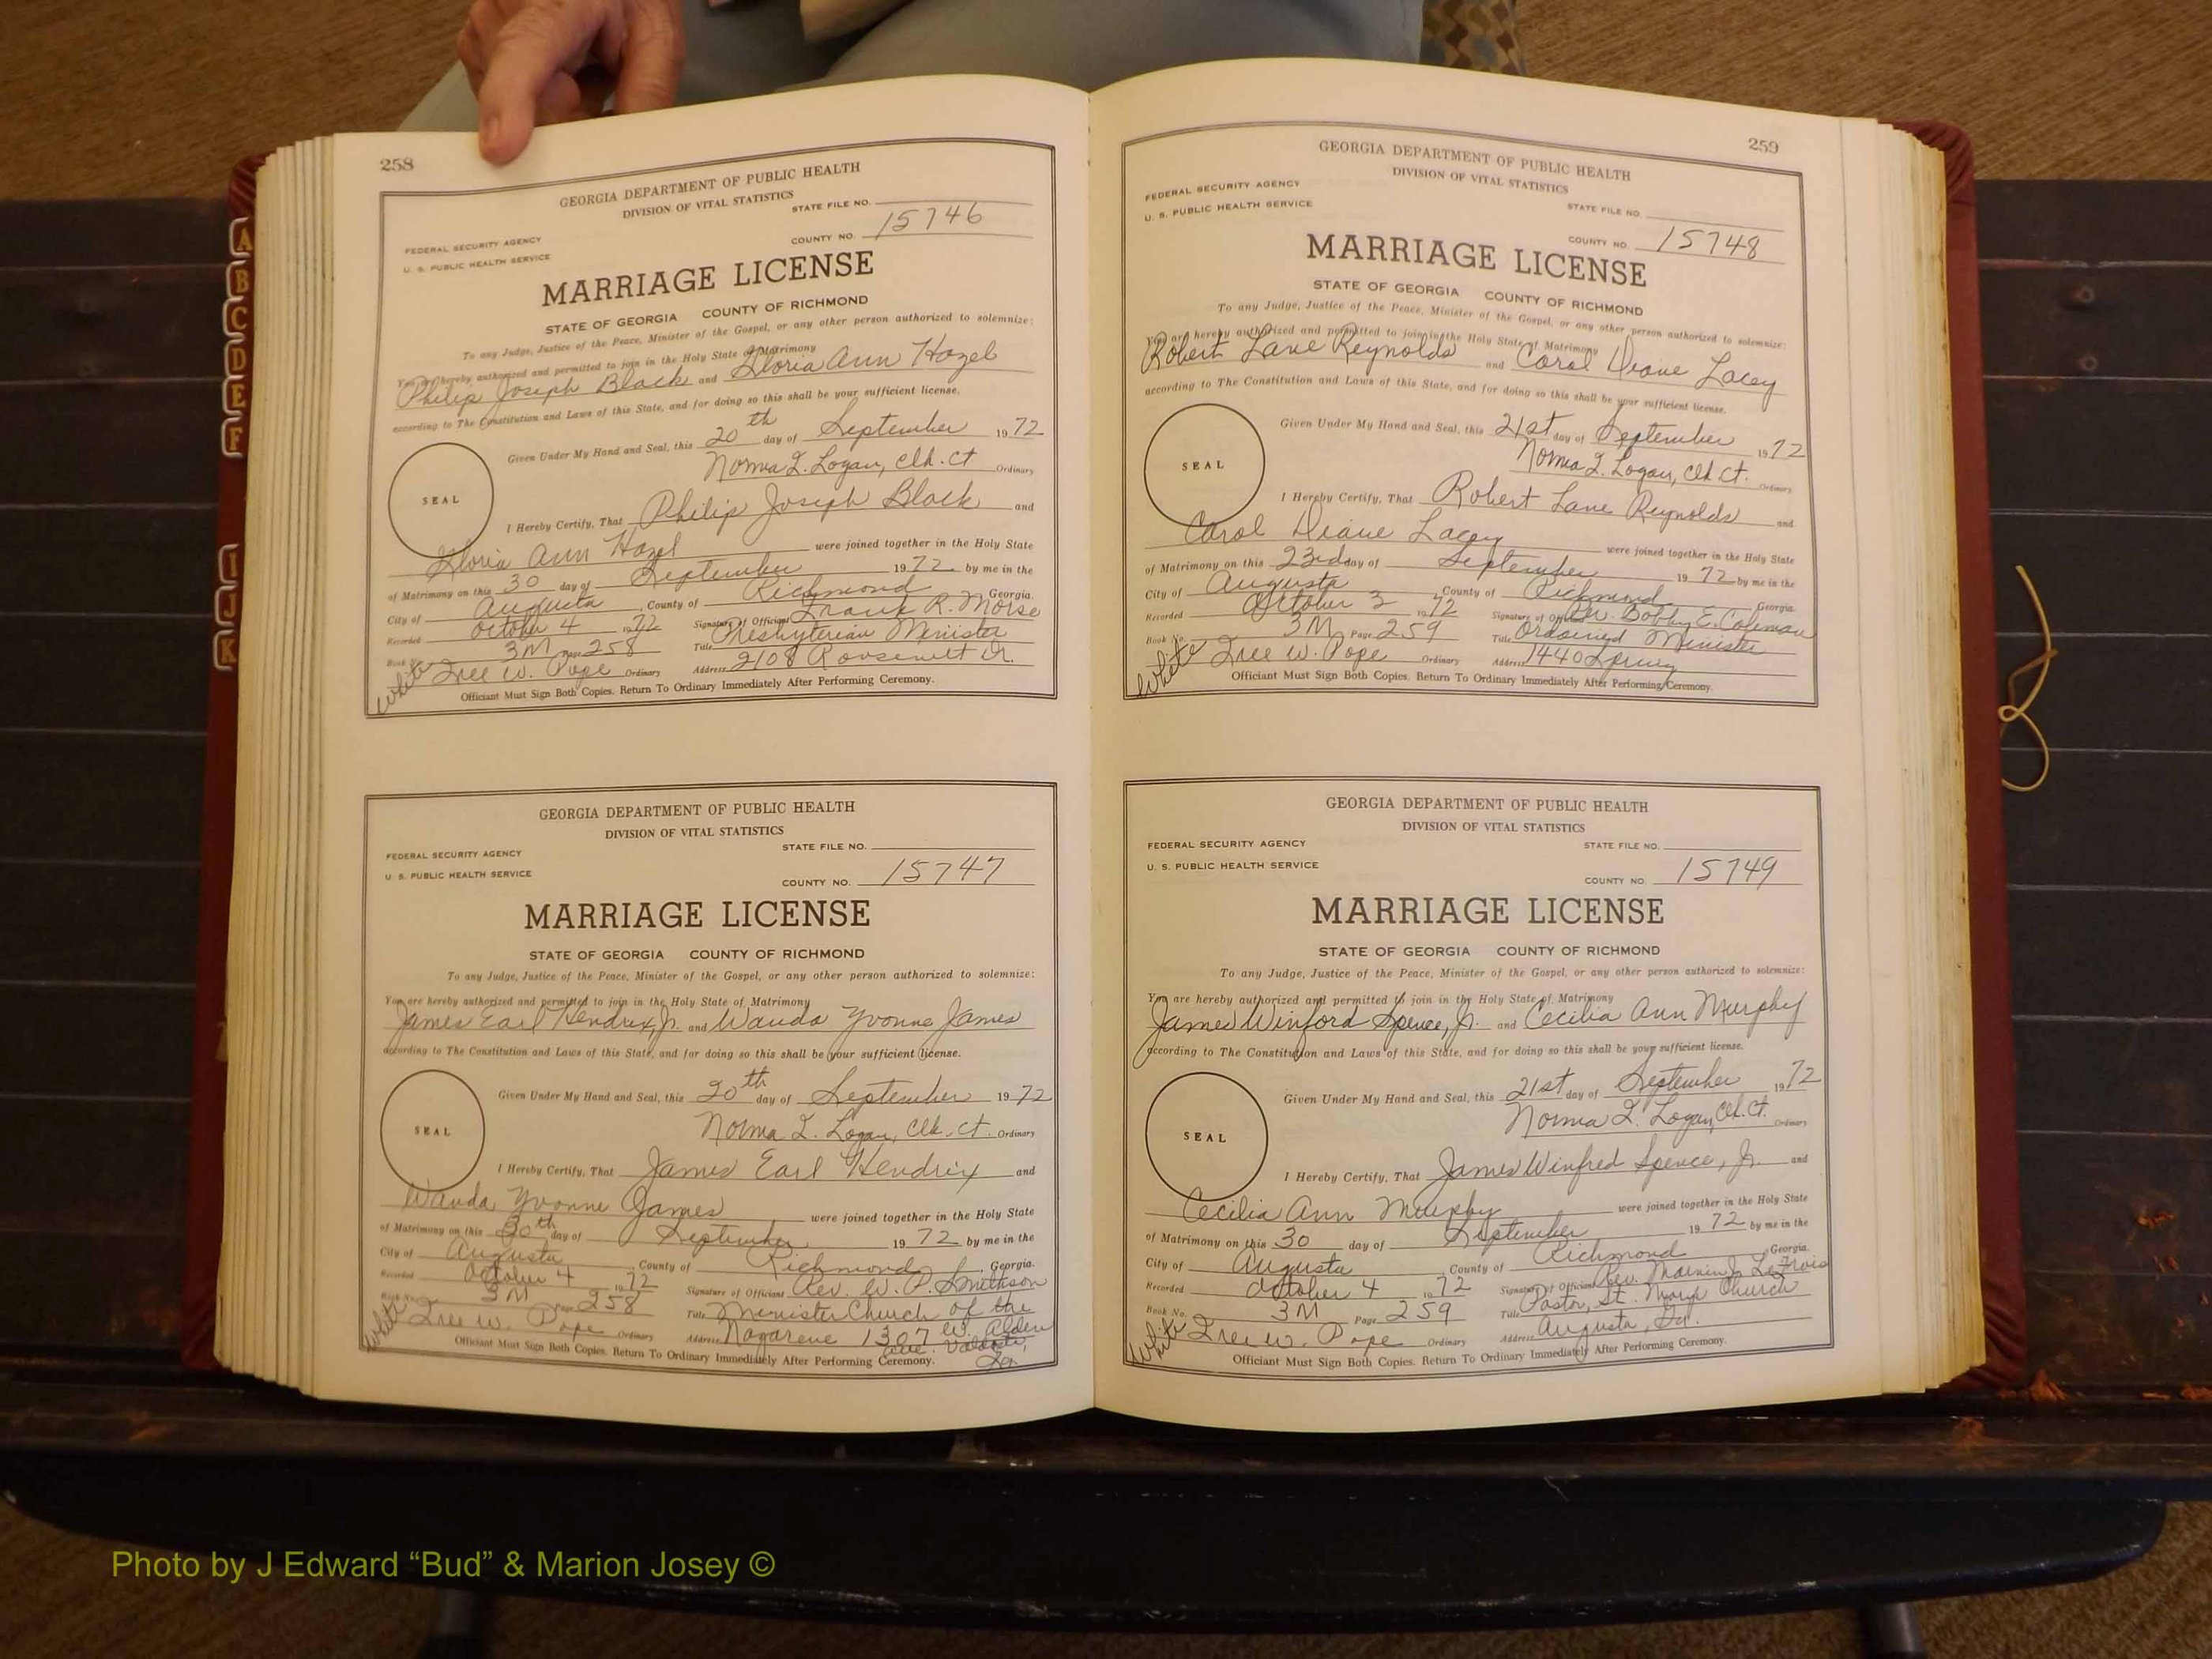 258
GEORGIA DEPARTMENT OF PUBLIC HEALTH
DIVISION OF VITAL STATISTICS
STATE FILE NO.
FEDERAL SECURITY AGENCY
U. S. PUBLIC HEALTH SERVICE
COUNTY NO. 15746
MARRIAGE LICENSE
STATE OF GEORGIA COUNTY OF RICHMOND
To any Judge, Justice of the Peace, Minister of the Gospel, or any other person authorized to solemnize:
You are hereby authorized and permitted to join in the Holy State of Matrimony
Philip Joseph Black and Gloria Ann Hazel
according to The Constitution and Laws of this State, and for doing so this shall be your sufficient license.
Given Under My Hand and Seal, this 20th day of September 1972
Norma L. Logan, Clk. Ct. Ordinary
SEAL
I Hereby Certify, That Philip Joseph Black and
Gloria Ann Hazel were joined together in the Holy State
of Matrimony on this 30 day of September 1972 by me in the
City of Augusta, County of Richmond Georgia.
Recorded October 4 1972 Signature of Officiant Frank R. Morse
Book No. 3M Page 258 Title Presbyterian Minister
White W. Pope Ordinary Address 2108 Roosevelt Dr.
Officiant Must Sign Both Copies. Return To Ordinary Immediately After Performing Ceremony.
GEORGIA DEPARTMENT OF PUBLIC HEALTH
DIVISION OF VITAL STATISTICS
STATE FILE NO.
FEDERAL SECURITY AGENCY
U. S. PUBLIC HEALTH SERVICE
COUNTY NO. 15747
MARRIAGE LICENSE
STATE OF GEORGIA COUNTY OF RICHMOND
To any Judge, Justice of the Peace, Minister of the Gospel, or any other person authorized to solemnize:
You are hereby authorized and permitted to join in the Holy State of Matrimony
James Earl Hendrix, Jr. and Wanda Yvonne James
according to The Constitution and Laws of this State, and for doing so this shall be your sufficient license.
Given Under My Hand and Seal, this 20th day of September 1972
Norma L. Logan, Clk. Ct. Ordinary
SEAL
I Hereby Certify, That James Earl Hendrix and
Wanda Yvonne James were joined together in the Holy State
of Matrimony on this 30th day of September 1972 by me in the
City of Augusta, County of Richmond, Georgia.
Recorded October 4 1972 Signature of Officiant Rev. W. P. Smithson
Book No. 3M Page 258 Title Minister Church of the
White W. Pope Ordinary Address Nazarene 1307 W. Alden
Ave. Valdosta,
Ga.
Officiant Must Sign Both Copies. Return To Ordinary Immediately After Performing Ceremony.
259
GEORGIA DEPARTMENT OF PUBLIC HEALTH
DIVISION OF VITAL STATISTICS
FEDERAL SECURITY AGENCY
U. S. PUBLIC HEALTH SERVICE
STATE FILE NO.
COUNTY NO. 15748
MARRIAGE LICENSE
STATE OF GEORGIA COUNTY OF RICHMOND
To any Judge, Justice of the Peace, Minister of the Gospel, or any other person authorized to solemnize:
You are hereby authorized and permitted to join in the Holy State of Matrimony
Robert Lane Reynolds and Carol Diane Lacey
according to The Constitution and Laws of this State, and for doing so this shall be your sufficient license.
Given Under My Hand and Seal, this 21st day of September 1972
Norma L. Logan, Clk. Ct. Ordinary
SEAL
I Hereby Certify, That Robert Lane Reynolds and
Carol Diane Lacey were joined together in the Holy State
of Matrimony on this 23rd day of September 1972 by me in the
City of Augusta, County of Richmond Georgia.
Recorded October 3 1972 Signature of Officiant Rev. Bobby E. Coleman
Book No. 3M Page 259 Title Ordained Minister
White W. Pope Ordinary Address 1440 Spring
Officiant Must Sign Both Copies. Return To Ordinary Immediately After Performing Ceremony.
GEORGIA DEPARTMENT OF PUBLIC HEALTH
DIVISION OF VITAL STATISTICS
FEDERAL SECURITY AGENCY
STATE FILE NO.
U. S. PUBLIC HEALTH SERVICE
COUNTY NO. 15749
MARRIAGE LICENSE
STATE OF GEORGIA COUNTY OF RICHMOND
To any Judge, Justice of the Peace, Minister of the Gospel, or any other person authorized to solemnize:
You are hereby authorized and permitted to join in the Holy State of Matrimony
James Winford Spence, Jr. and Cecilia Ann Murphy
according to The Constitution and Laws of this State, and for doing so this shall be your sufficient license.
Given Under My Hand and Seal, this 21st day of September 1972
Norma L. Logan, Clk. Ct. Ordinary
SEAL
I Hereby Certify, That James Winfred Spence, Jr. and
Cecilia Ann Murphy were joined together in the Holy State
of Matrimony on this 30 day of September 1972 by me in the
City of Augusta, County of Richmond, Georgia.
Recorded October 4 1972 Signature of Officiant Rev.
Book No. 3M Page 259 Title Pastor, St. Marys Church
White W. Pope Ordinary Address Augusta, Ga.
Officiant Must Sign Both Copies. Return To Ordinary Immediately After Performing Ceremony.
A
B
C
D
E
F
I
J
K
Photo by J Edward “Bud” & Marion Josey ©